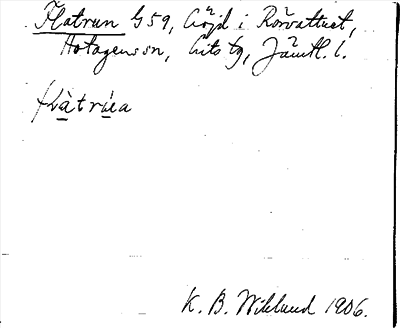 Flatrun G59, höjd i Rörvattnet,
Hotagens sn, Lits tg, Jämtl. l.
flàtrúa
K. B. Wiklund 1906.